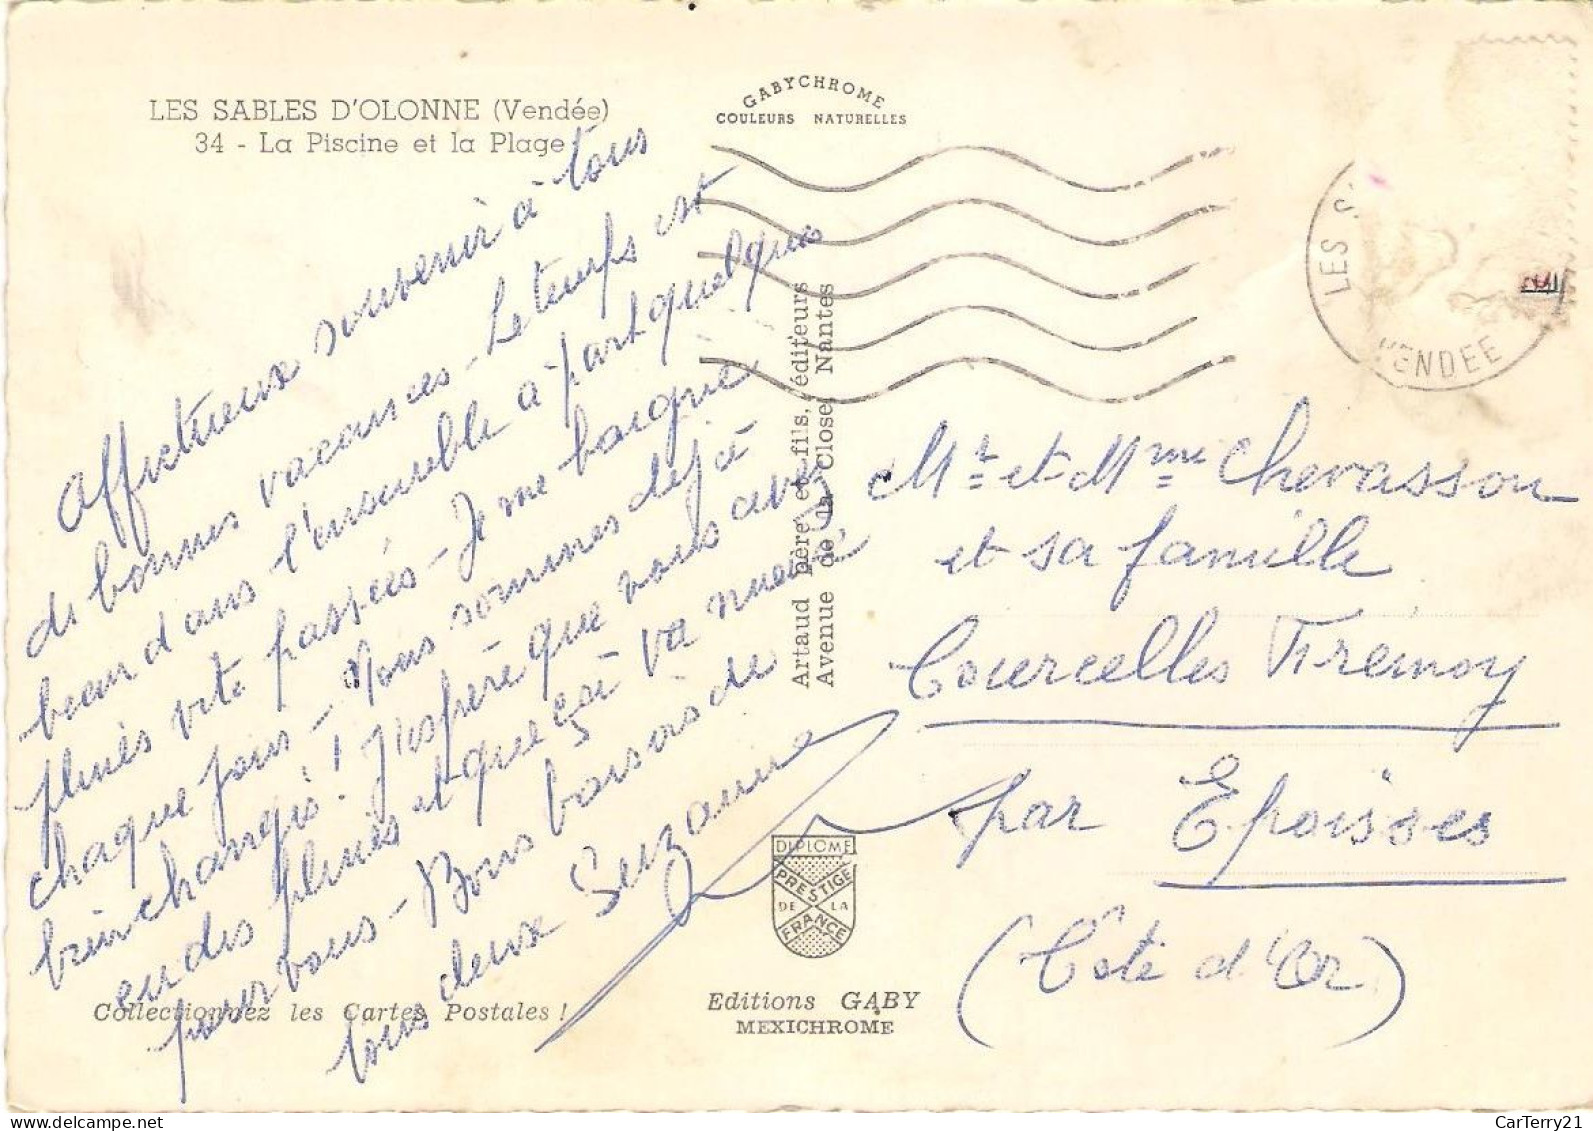 LES SABLES D'OLONNE (Vendée)
34 - La Piscine et la Plage
GABYCHROME
COULEURS NATURELLES
Affectueux souvenir à tous
de bonnes vacances - Le temps est
beau dans l'ensemble à part quelques
pluies vite passées - Je me baigne
chaque jour - Nous sommes déjà
bien changés ! J'espère que vous avez
eu des pluies et que ça va mieux
pour vous - Bons baisers de
tous deux Suzanne
Artaud père et fils, éditeurs
Avenue de la Close, Nantes
LES S
VENDEE
Mr et Mme Chevasson
et sa famille
Courcelles Frémoy
par Epoisses
(Côte d'Or)
DIPLOME
PRESTIGE
DE LA
FRANCE
Collectionnez les Cartes Postales !
Editions GABY
MEXICHROME
CarTerry21